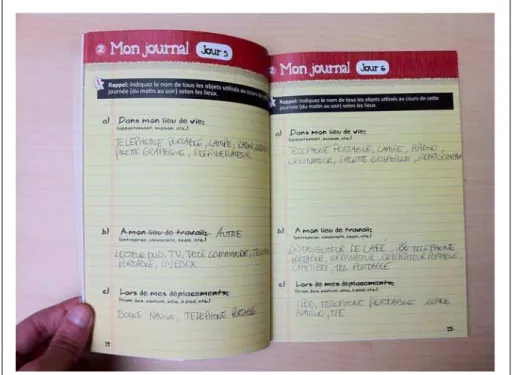 2 Mon journal Jour 5
Rappel: Indiquez le nom de tous les objets utilisés au cours de cette
journée (du matin au soir) selon les lieux.
a) Dans mon lieu de vie:
(appartement, maison, etc.)
TELEPHONE PORTABLE, LAMPE, RADIO,
PALETTE GRAPHIQUE, REFRIGERATEUR
b) A mon lieu de travail: AUTRE
(entreprise, université, école, etc.)
LECTEUR DVD, TV, TELECOMMANDE,
PORTABLE, LIVEBOX
c) Lors de mes déplacements:
(train, bus, voiture, vélo, à pied, etc.)
BORNE NAVIGO, TELEPHONE PORTABLE
2 Mon journal Jour 6
Rappel: Indiquez le nom de tous les objets utilisés au cours de cette
journée (du matin au soir) selon les lieux.
a) Dans mon lieu de vie:
(appartement, maison, etc.)
TELEPHONE PORTABLE, LAMPE, RADIO,
ORDINATEUR, PALETTE GRAPHIQUE, REFRIGERATEUR
b) A mon lieu de travail:
(entreprise, université, école, etc.)
DISTRIBUTEUR DE CAFE, TELEPHONE
PORTABLE, ORDINATEUR, ORDINATEUR PORTABLE,
CAFETIERE, TEL PORTABLE
c) Lors de mes déplacements:
(train, bus, voiture, vélo, à pied, etc.)
IPOD, TELEPHONE PORTABLE, BORNE
NAVIGO, TPE